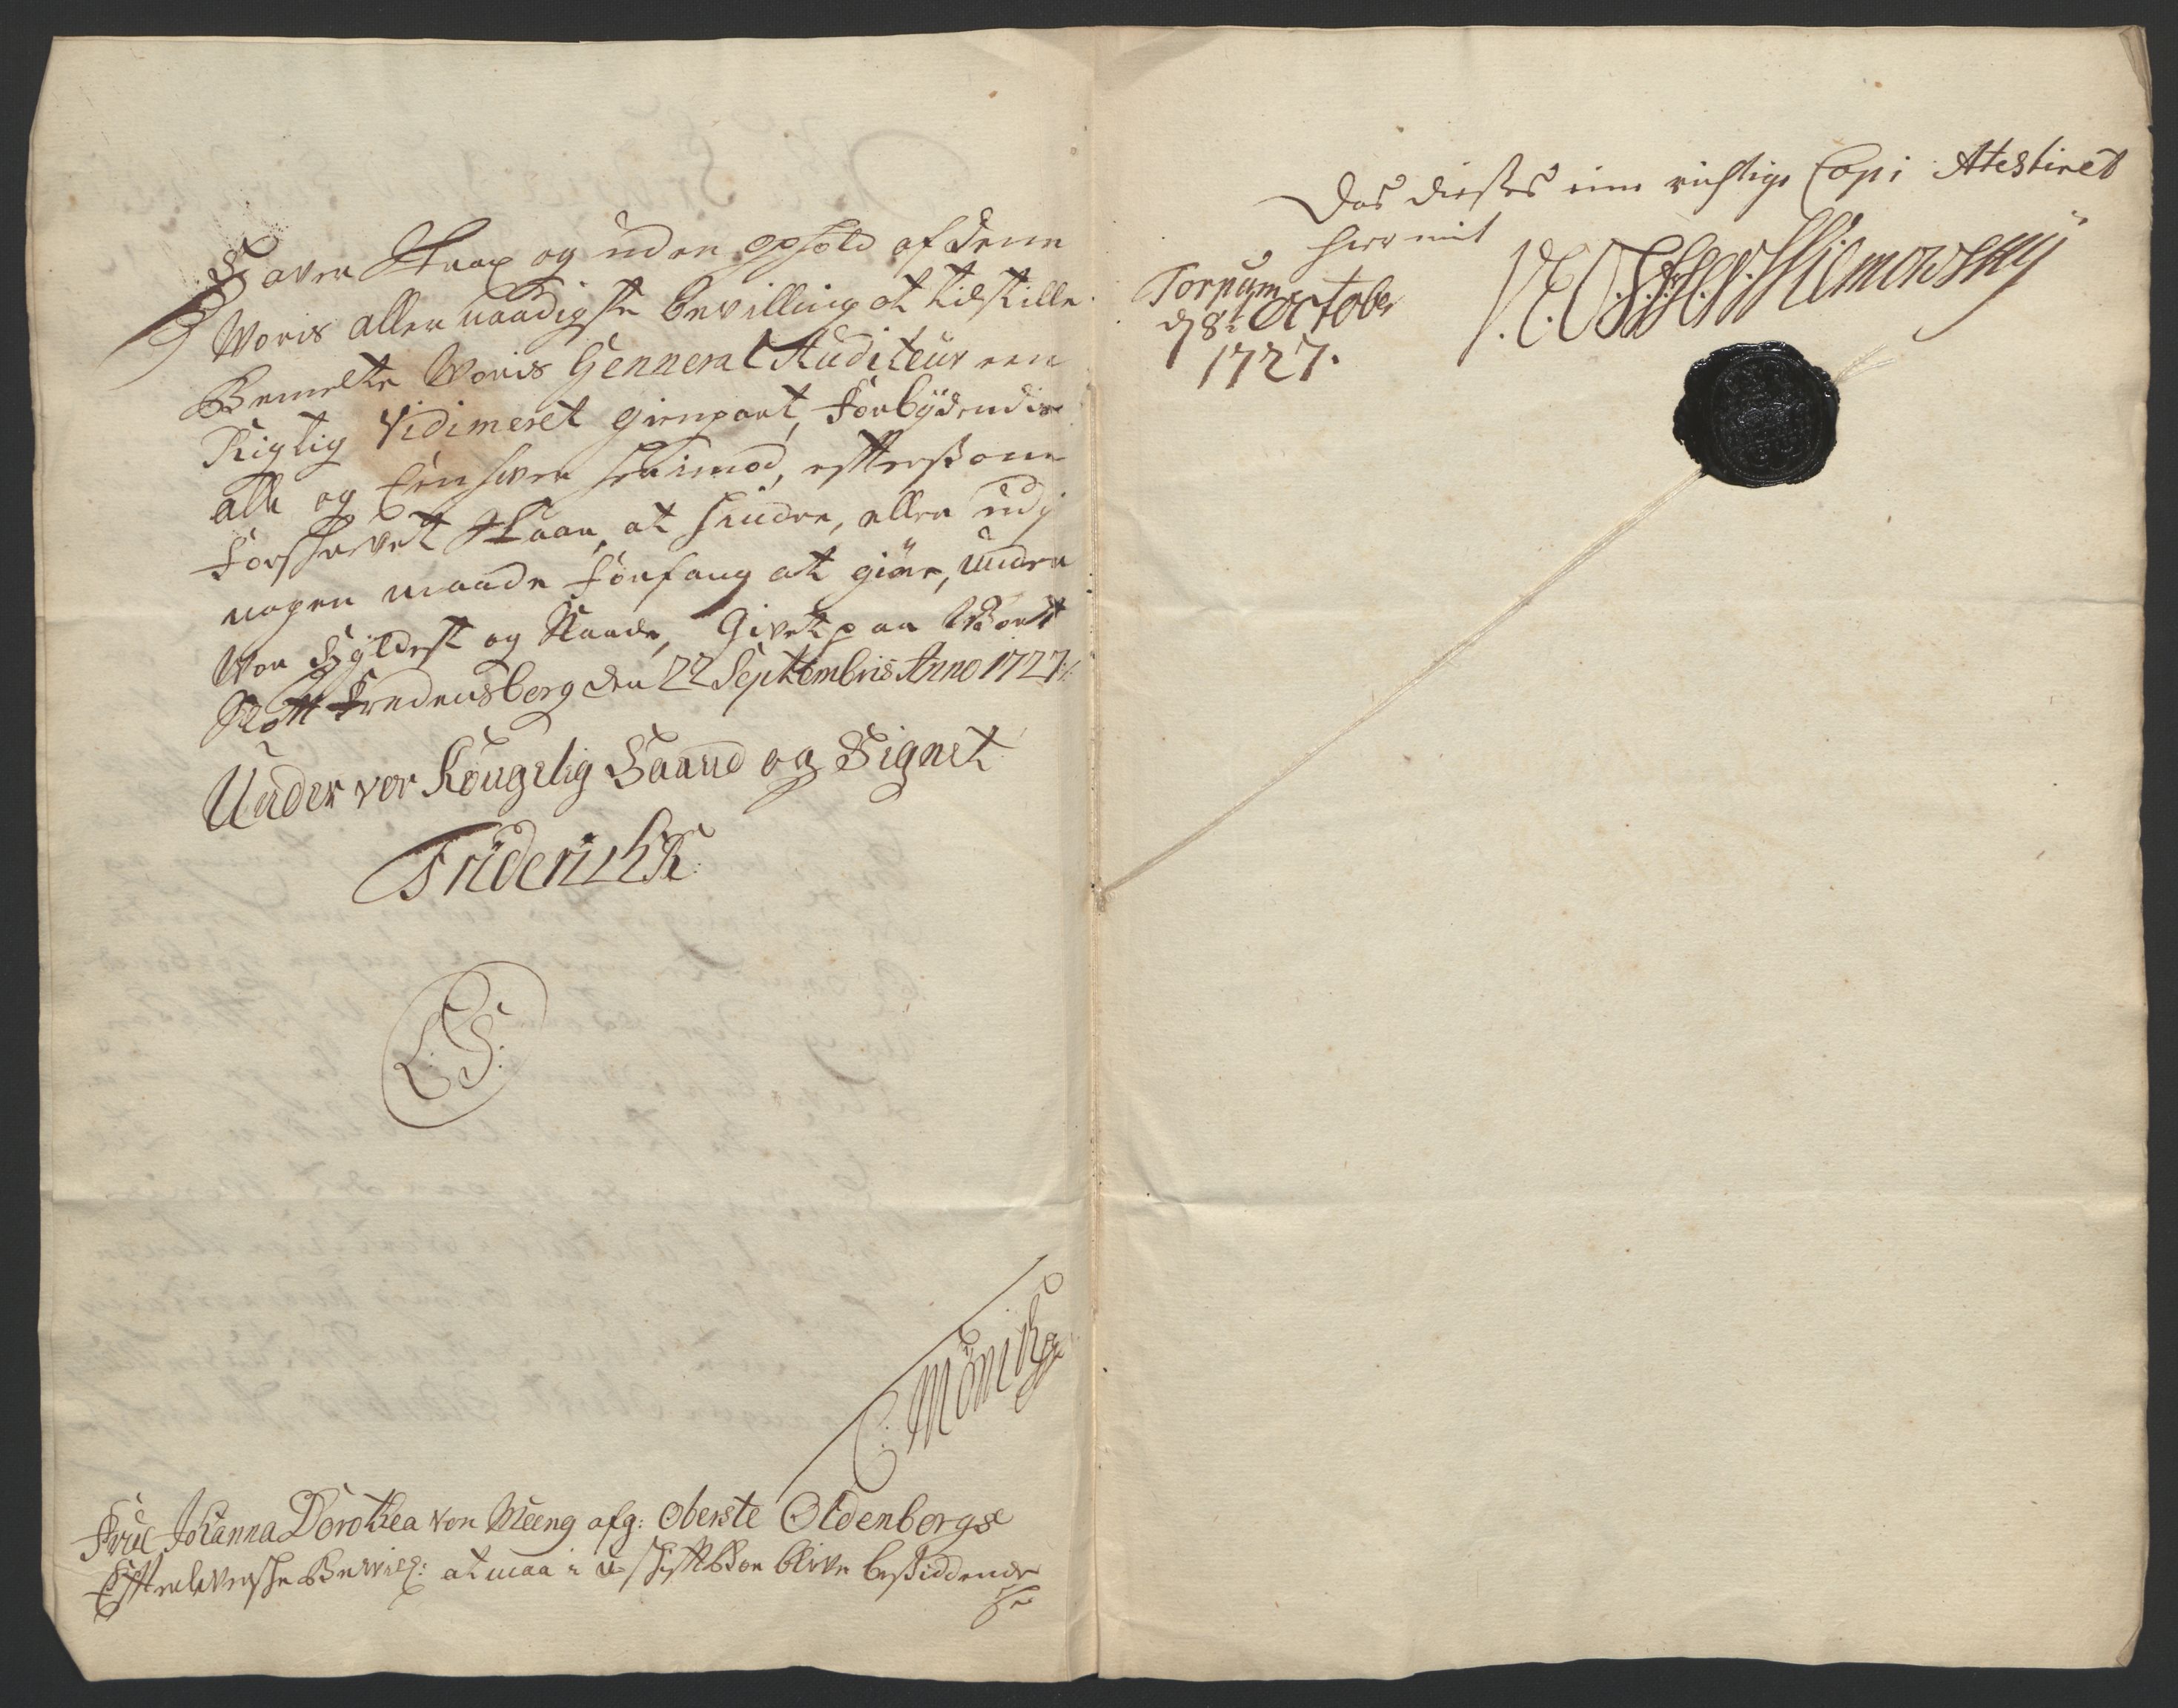 Haver Strax og uden ophold af denne
Voris allernaadigste bevilling at tilstille
Bemelte Voris General Auditeur een
Rigtig Vidimeret gienpart, Forbydendis
alle og Een hver herimod, efftersom
Forskrevet Staar, at hindre, eller udj
nogen maade Forfang at giøre, under
Vor Hyldest og Naade, Givet paa Vort
Slott Fredensberg den 22 Septembris Anno 1727
Under vor Kongelig Haand og Signet
Friderich R:
L: S:
C: Möinichen
Frue Johanna Dorothea von Meeng afg: Oberste Oldenborgs
Efterleverske Bevilg: at maa i u-skifft Boe blive besiddende
Das dießes eine richtige Copi Atestiret
hiermit
Torpum
d 8t October
1727.